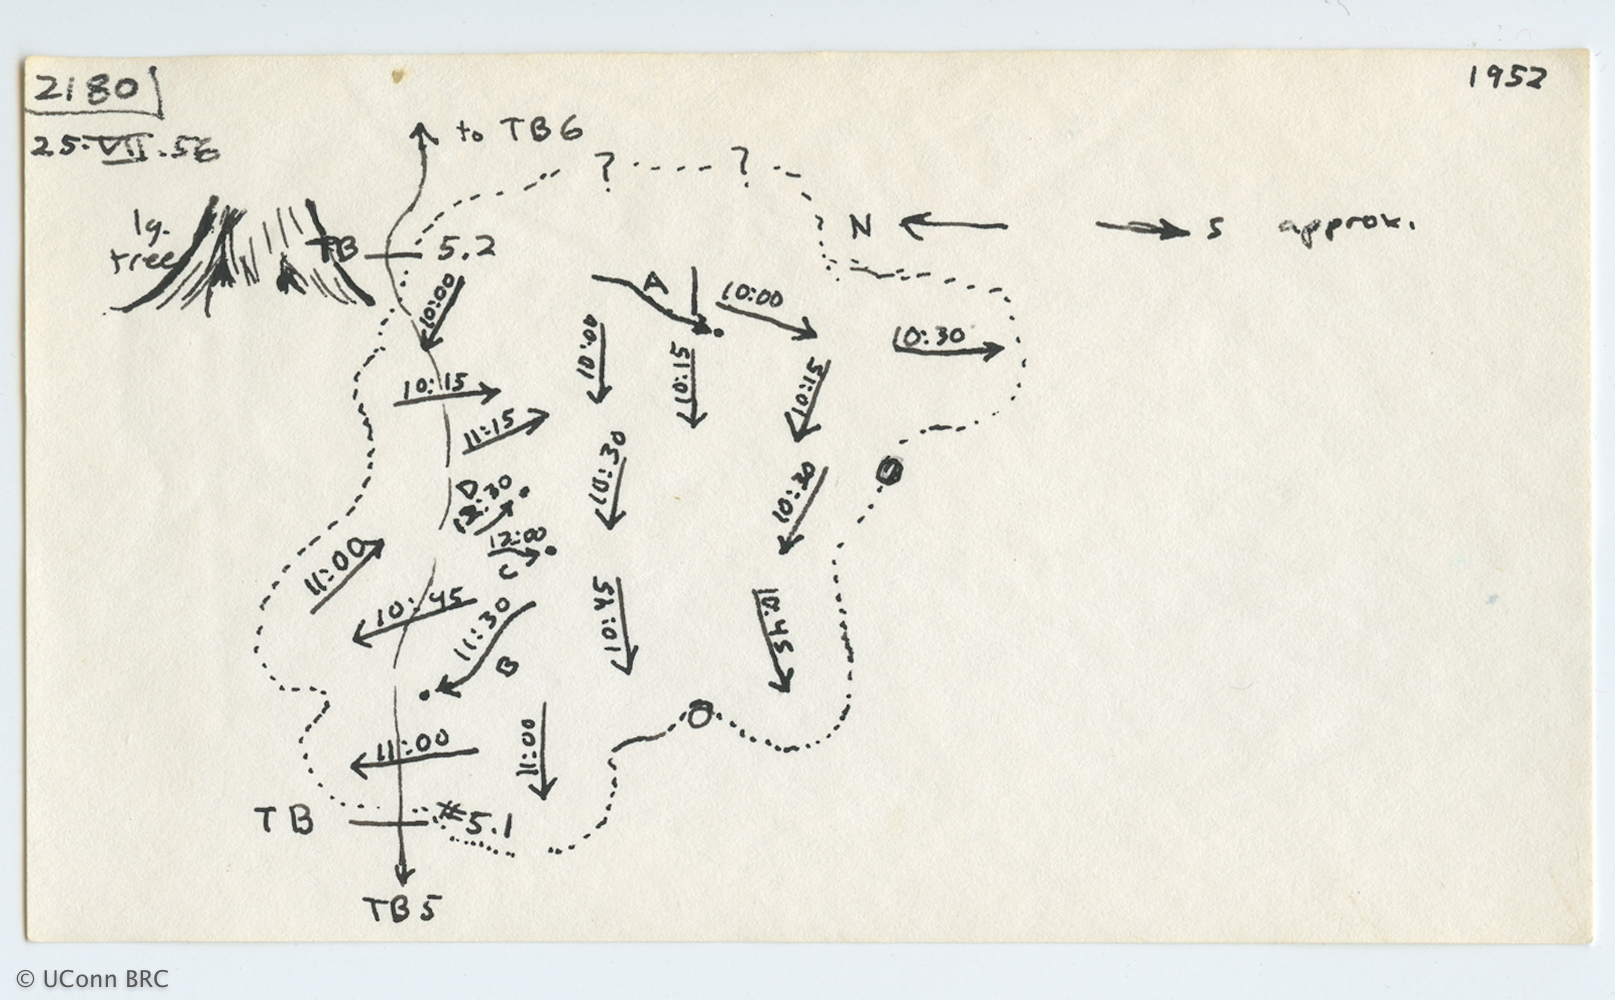 2180
1952
25.VII.56
to TB6
? ?
lg.
tree
TB 5.2
N S approx.
10:00
A
10:00
10:30
10:00
10:15
10:15
10:15
11:15
10:30
10:30
D
12:30
12:00
C
11:00
10:45
11:30
B
10:45
10:45
11:00
11:00
TB #5.1
TB5
© UConn BRC